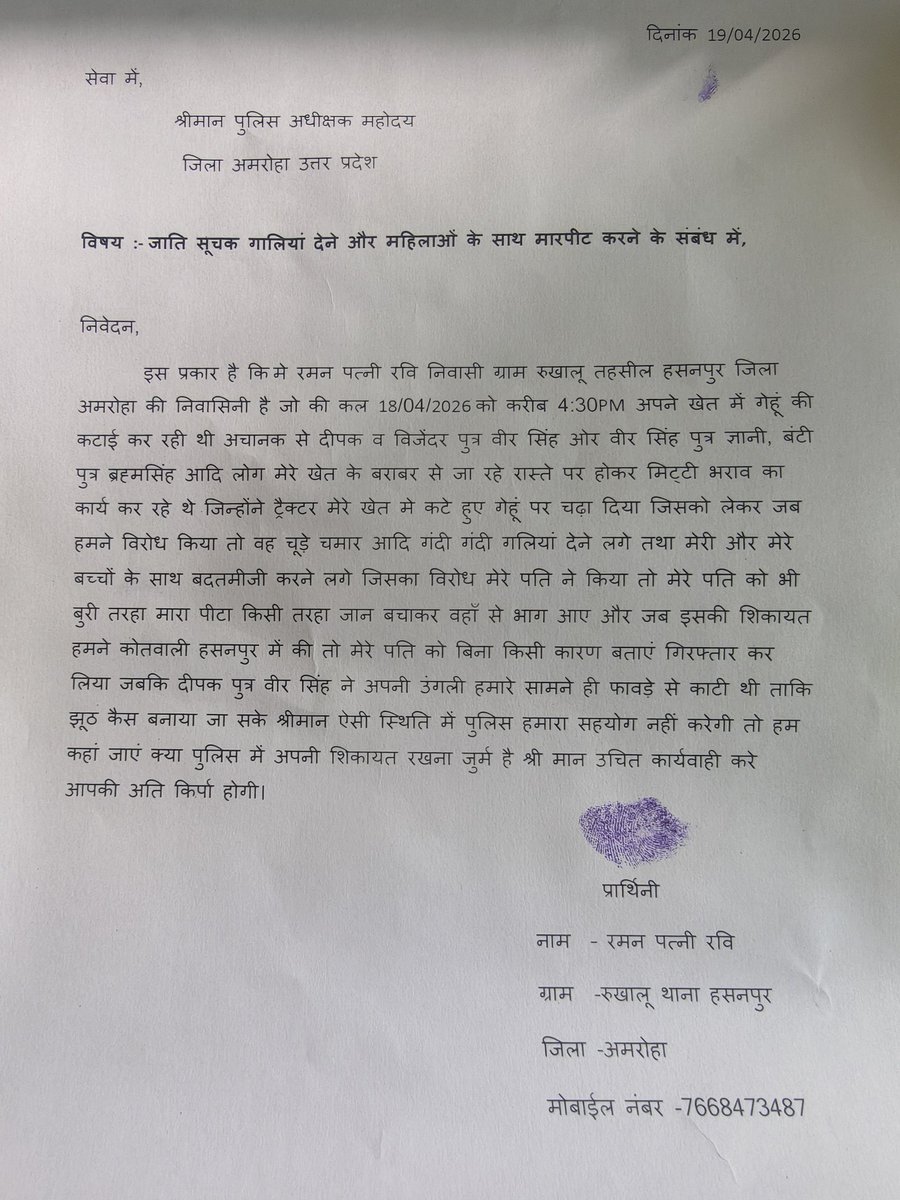 दिनांक 19/04/2026
सेवा में,
श्रीमान पुलिस अधीक्षक महोदय
जिला अमरोहा उत्तर प्रदेश
विषय :- जाति सूचक गालियां देने और महिलाओं के साथ मारपीट करने के संबंध में,
निवेदन,
इस प्रकार है कि मे रमन पत्नी रवि निवासी ग्राम रुखालू तहसील हसनपुर जिला
अमरोहा की निवासिनी है जो की कल 18/04/2026 को करीब 4:30PM अपने खेत में गेहूं की
कटाई कर रही थी अचानक से दीपक व विजेंदर पुत्र वीर सिंह ओर वीर सिंह पुत्र ज्ञानी, बंटी
पुत्र ब्रह्मसिंह आदि लोग मेरे खेत के बराबर से जा रहे रास्ते पर होकर मिट्टी भराव का
कार्य कर रहे थे जिन्होंने ट्रैक्टर मेरे खेत मे कटे हुए गेहूं पर चढ़ा दिया जिसको लेकर जब
हमने विरोध किया तो वह चूड़े चमार आदि गंदी गंदी गलियां देने लगे तथा मेरी और मेरे
बच्चों के साथ बदतमीजी करने लगे जिसका विरोध मेरे पति ने किया तो मेरे पति को भी
बुरी तरहा मारा पीटा किसी तरहा जान बचाकर वहाँ से भाग आए और जब इसकी शिकायत
हमने कोतवाली हसनपुर में की तो मेरे पति को बिना किसी कारण बताएं गिरफ्तार कर
लिया जबकि दीपक पुत्र वीर सिंह ने अपनी उंगली हमारे सामने ही फावड़े से काटी थी ताकि
झूठ कैस बनाया जा सके श्रीमान ऐसी स्थिति में पुलिस हमारा सहयोग नहीं करेगी तो हम
कहां जाएं क्या पुलिस में अपनी शिकायत रखना जुर्म है श्री मान उचित कार्यवाही करे
आपकी अति किर्पा होगी।
प्रार्थिनी
नाम - रमन पत्नी रवि
ग्राम -रुखालू थाना हसनपुर
जिला -अमरोहा
मोबाईल नंबर -7668473487